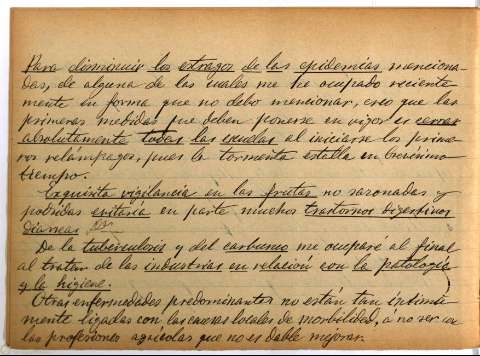 Para disminuir los estragos de las epidemias menciona-
das, de alguna de las cuales me he ocupado reciente
mente en forma que no debo mencionar, creo que las
primeras medidas que deben ponerse en vigor es cerrar
absolutamente todas las escuelas al iniciarse los prime
ros relámpagos, pues la tormenta estalla en brevísimo
tiempo.
Exquisita vigilancia en las frutas no sazonadas y
podridas evitaría en parte muchos trastornos digestivos
diarreas
De la tuberculosis y del carbunco me ocuparé al final
al tratar de las industrias en relación con la patología
y la higiene.
Otras enfermedades predominantes no están tan íntima
mente ligadas con las causas locales de morbilidad, á no ser con
las profesiones agrícolas que no es dable mejorar.